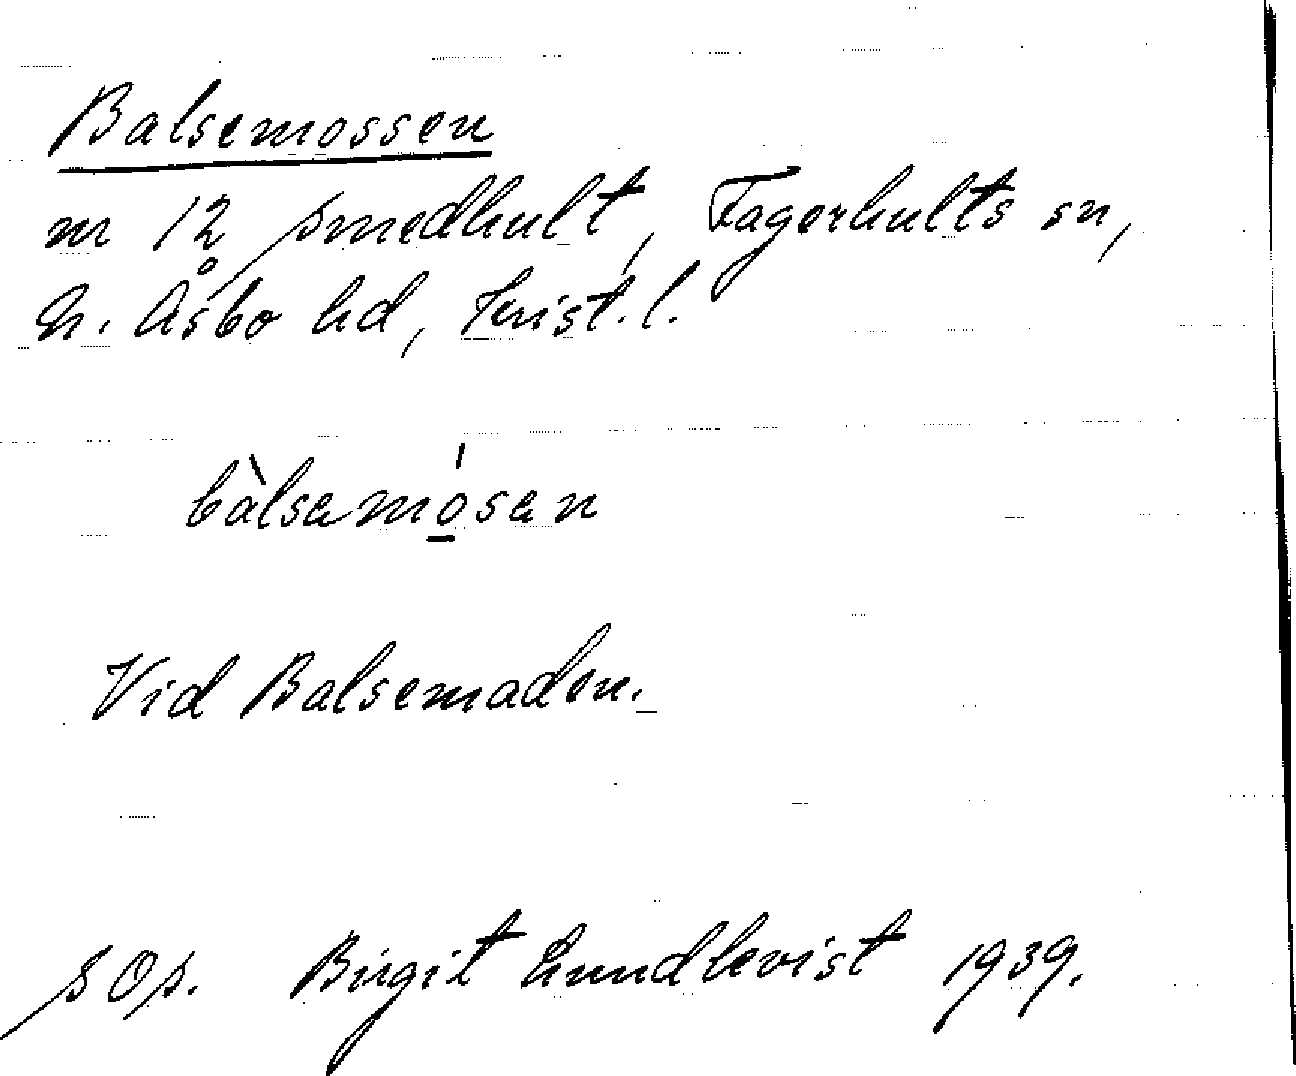 Balsemossen
nr 12 Smedhult, Fagerhults sn,
N. Åsbo hd, Krist. l.
bàlsamósan
Vid Balsemaden.
S Os. Birgit Lundkvist 1939.